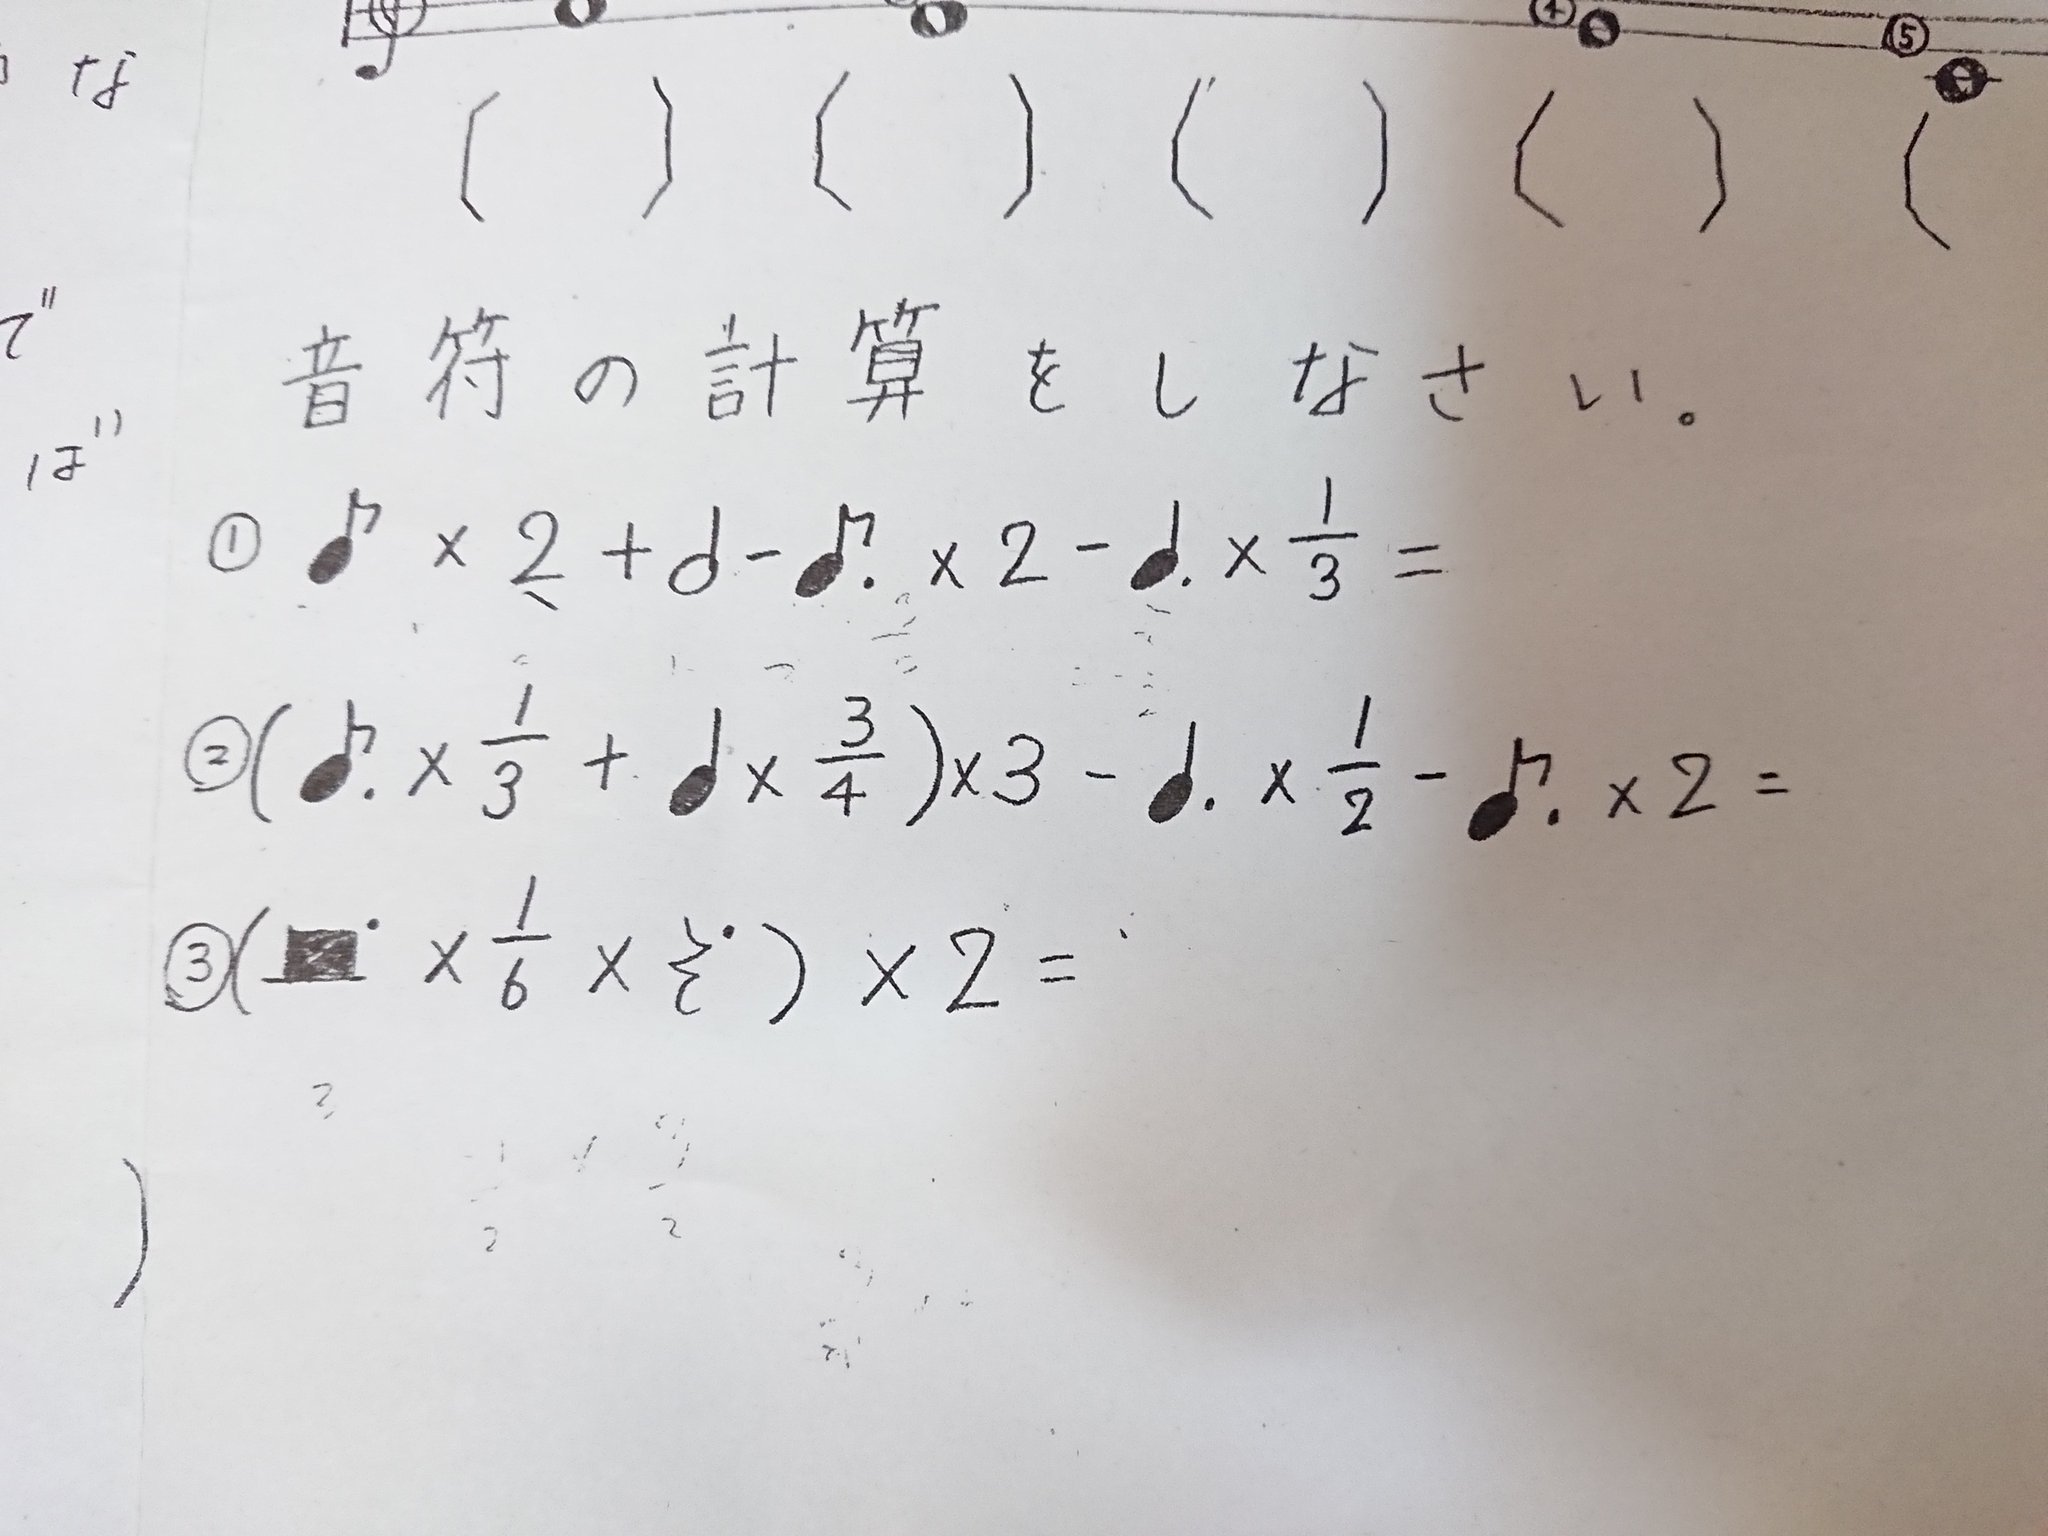 な
④ ⑤
( ) ( ) ( ) ( ) (
で
音符の計算をしなさい。
ば
① ♪ × 2 + 𝅗𝅥 - ♪. × 2 - ♩. × 1/3 =
② (♪. × 1/3 + ♩ × 3/4) × 3 - ♩. × 1/2 - ♪. × 2 =
③ (𝄼. × 1/6 × 𝄽.) × 2 =
)